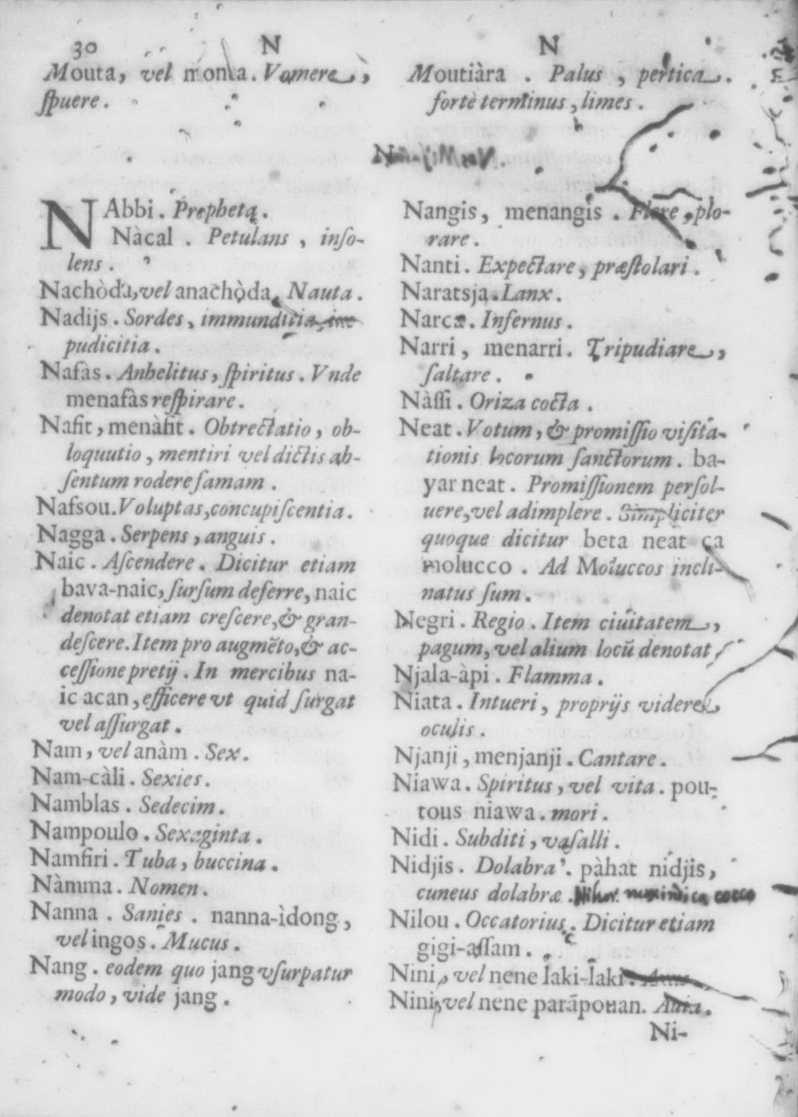 30 N N
Mouta, vel monta. Vomere,
ſpuere.
NAbbi. Propheta.
Nàcal. Petulans, inſo-
lens.
Nachòda, vel anachòda. Nauta.
Nadijs. Sordes, immunditia, im
pudicitia.
Nafàs. Anhelitus, ſpiritus. Vnde
menafàs reſpirare.
Nafit, menàfit. Obtrectatio, ob-
loquutio, mentiri vel dictis ab-
ſentum rodere famam.
Nafsou. Voluptas, concupiſcentia.
Nagga. Serpens, anguis.
Naic. Aſcendere. Dicitur etiam
bava-naic, ſurſum deferre, naic
denotat etiam creſcere, & gran-
deſcere. Item pro augmẽto, & ac-
ceſſione pretij. In mercibus na-
ic acan, efficere vt quid ſurgat
vel aſſurgat.
Nam, vel anàm. Sex.
Nam-càli. Sexies.
Namblas. Sedecim.
Nampoulo. Sexaginta.
Namfiri. Tuba, buccina.
Nàmma. Nomen.
Nanna. Sanies. nanna-ìdong,
vel ingos. Mucus.
Nang. eodem quo jang vſurpatur
modo, vide jang.
Moutiàra. Palus, pertica.
fortè terminus, limes.
Nangis, menangis. Flere, plo-
rare.
Nanti. Expectare, præſtolari.
Naratsja. Lanx.
Narca. Infernus.
Narri, menarri. Tripudiare,
ſaltare.
Nàſſi. Oriza cocta.
Neat. Votum, & promiſſio viſita-
tionis locorum ſanctorum. ba-
yar neat. Promiſſionem perſol-
uere, vel adimplere. Simpliciter
quoque dicitur beta neat ca
molucco. Ad Moluccos incli-
natus ſum.
Negri. Regio. Item ciuitatem,
pagum, vel alium locũ denotat.
Njala-àpi. Flamma.
Niata. Intueri, proprijs videre
oculis.
Njanji, menjanji. Cantare.
Niawa. Spiritus, vel vita. pou-
tous niawa. mori.
Nidi. Subditi, vaſalli.
Nidjis. Dolabra. pàhat nidjis,
cuneus dolabræ.
Nilou. Occatorius. Dicitur etiam
gigi-aſſam.
Nini, vel nene laki-laki.
Nini, vel nene parāpouan. Auia.
Ni-